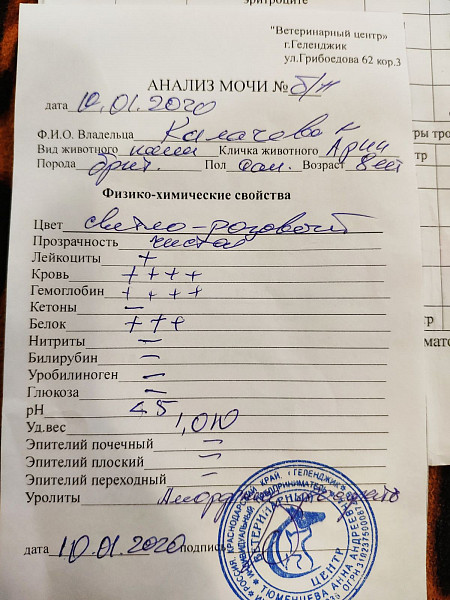 эритроците
"Ветеринарный центр»
г.Геленджик
ул.Грибоедова 62 кор.3
АНАЛИЗ МОЧИ № б/н
дата 10.01.2020
Ф.И.О. Владельца
Вид животного кошка Кличка животного
Порода брит. Пол сам. Возраст 8 лет
Физико-химические свойства
Цвет светло-розовый
Прозрачность чистая
Лейкоциты +
Кровь ++++
Гемоглобин ++++
Кетоны −
Белок +++
Нитриты −
Билирубин −
Уробилиноген −
Глюкоза −
рН
Уд.вес 1,010
Эпителий почечный −
Эпителий плоский −
Эпителий переходный −
Уролиты Аморфные
дата 10.01.2020 подпись
РОССИЯ, КРАСНОДАРСКИЙ КРАЙ, Г. ГЕЛЕНДЖИК
ИНДИВИДУАЛЬНЫЙ ПРЕДПРИНИМАТЕЛЬ
ВЕТЕРИНАРНЫЙ
ЦЕНТР
ТЮМЕНЦЕВА АННА АНДРЕЕВНА